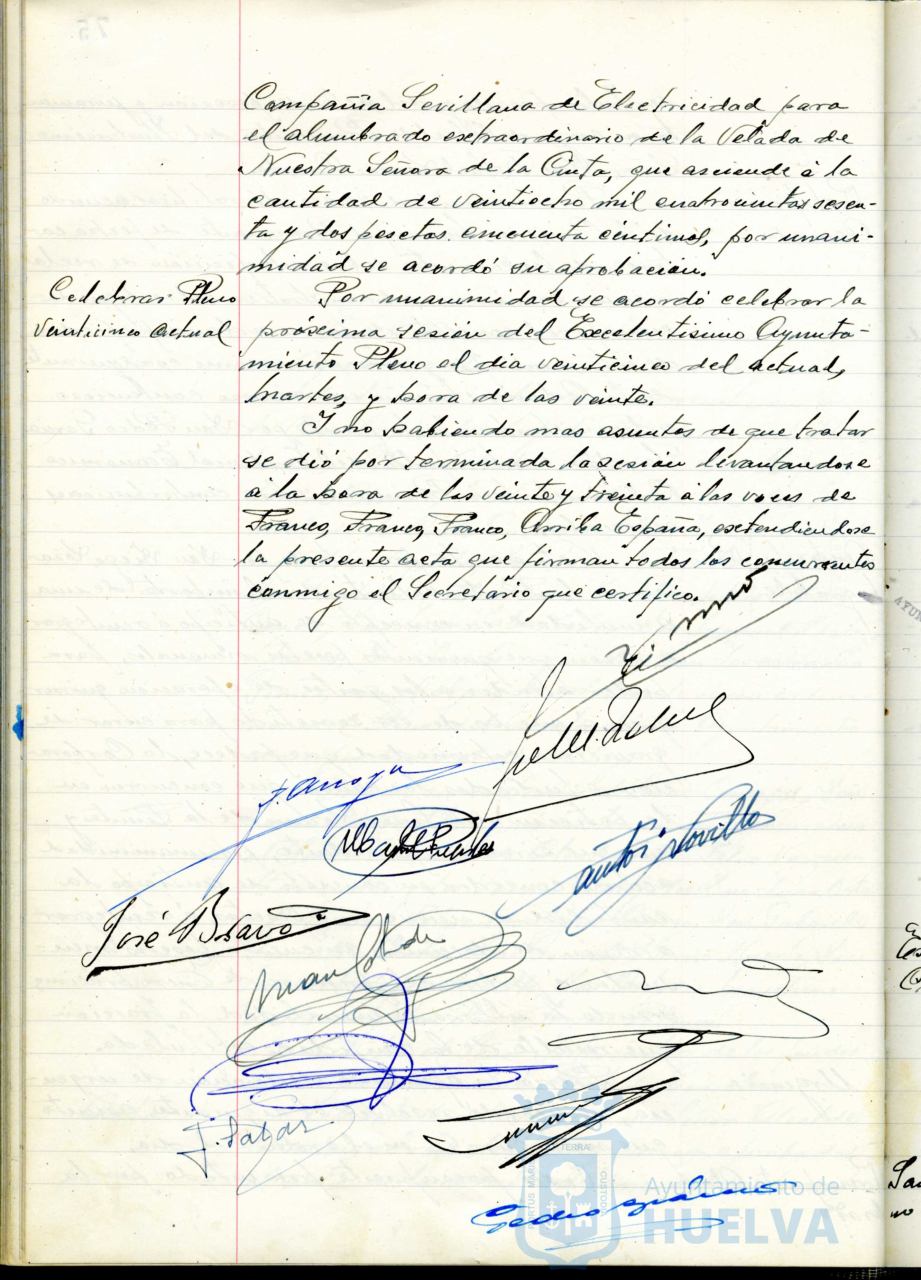 Compañia Sevillana de Electricidad para
el alumbrado extraordinario de la Velada de
Nuestra Señora de la Cinta, que asciende á la
cantidad de veintiocho mil cuatrocientas sesen-
ta y dos pesetas cincuenta céntimos, por unani-
midad se acordó su aprobación.
Celebrar Pleno
veinticinco actual
Por unanimidad se acordó celebrar la
próxima sesión del Excelentísimo Ayunta-
miento Pleno el dia veinticinco del actual,
Martes, y hora de las veinte.
Y no habiendo mas asuntos de que tratar
se dió por terminada la sesión levantandose
á la hora de las veinte y treinta á las voces de
Franco, Franco, Franco, Arriba España, extendiendose
la presente acta que firman todos los concurrentes
conmigo el Secretario que certifico.
José Bravo
Ayuntamiento de
HUELVA